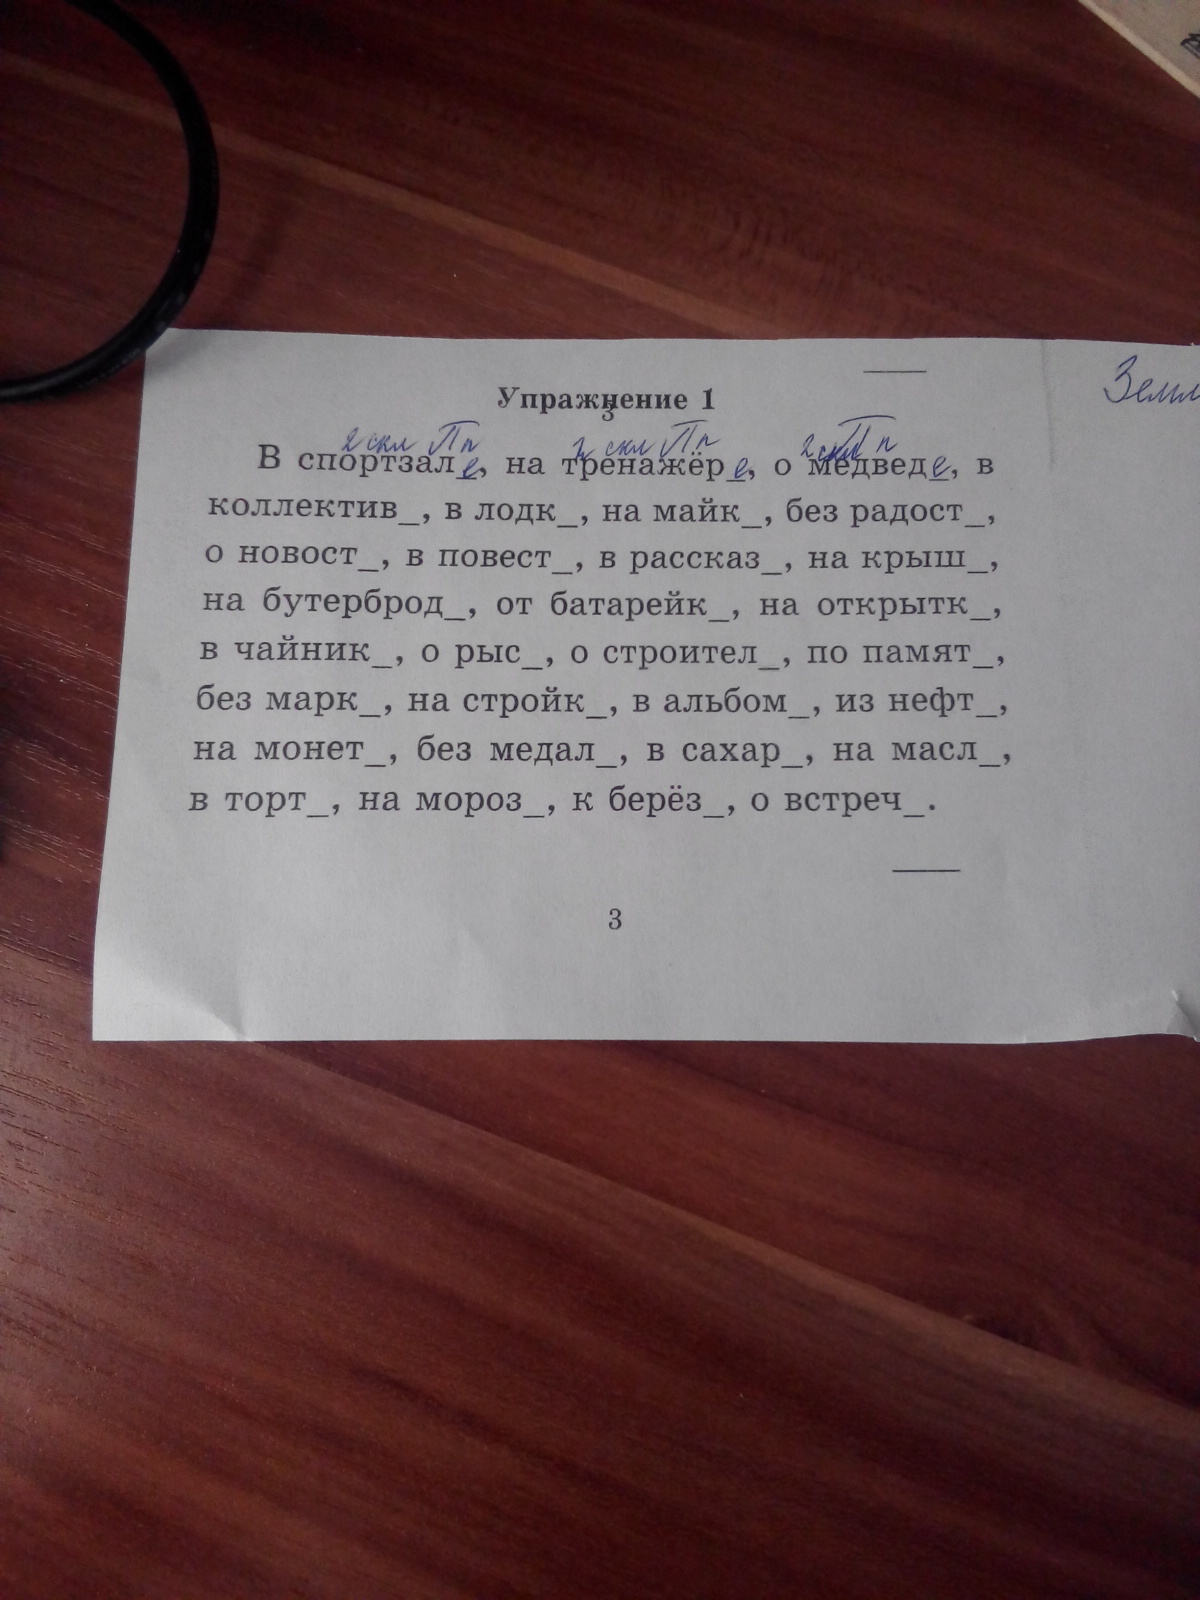 Земл
Упражнение 1
2 скл Пп 2 скл Пп 2 скл Пп
В спортзале, на тренажёре, о медведе, в
коллектив_, в лодк_, на майк_, без радост_,
о новост_, в повест_, в рассказ_, на крыш_,
на бутерброд_, от батарейк_, на открытк_,
в чайник_, о рыс_, о строител_, по памят_,
без марк_, на стройк_, в альбом_, из нефт_,
на монет_, без медал_, в сахар_, на масл_,
в торт_, на мороз_, к берёз_, о встреч_.
3